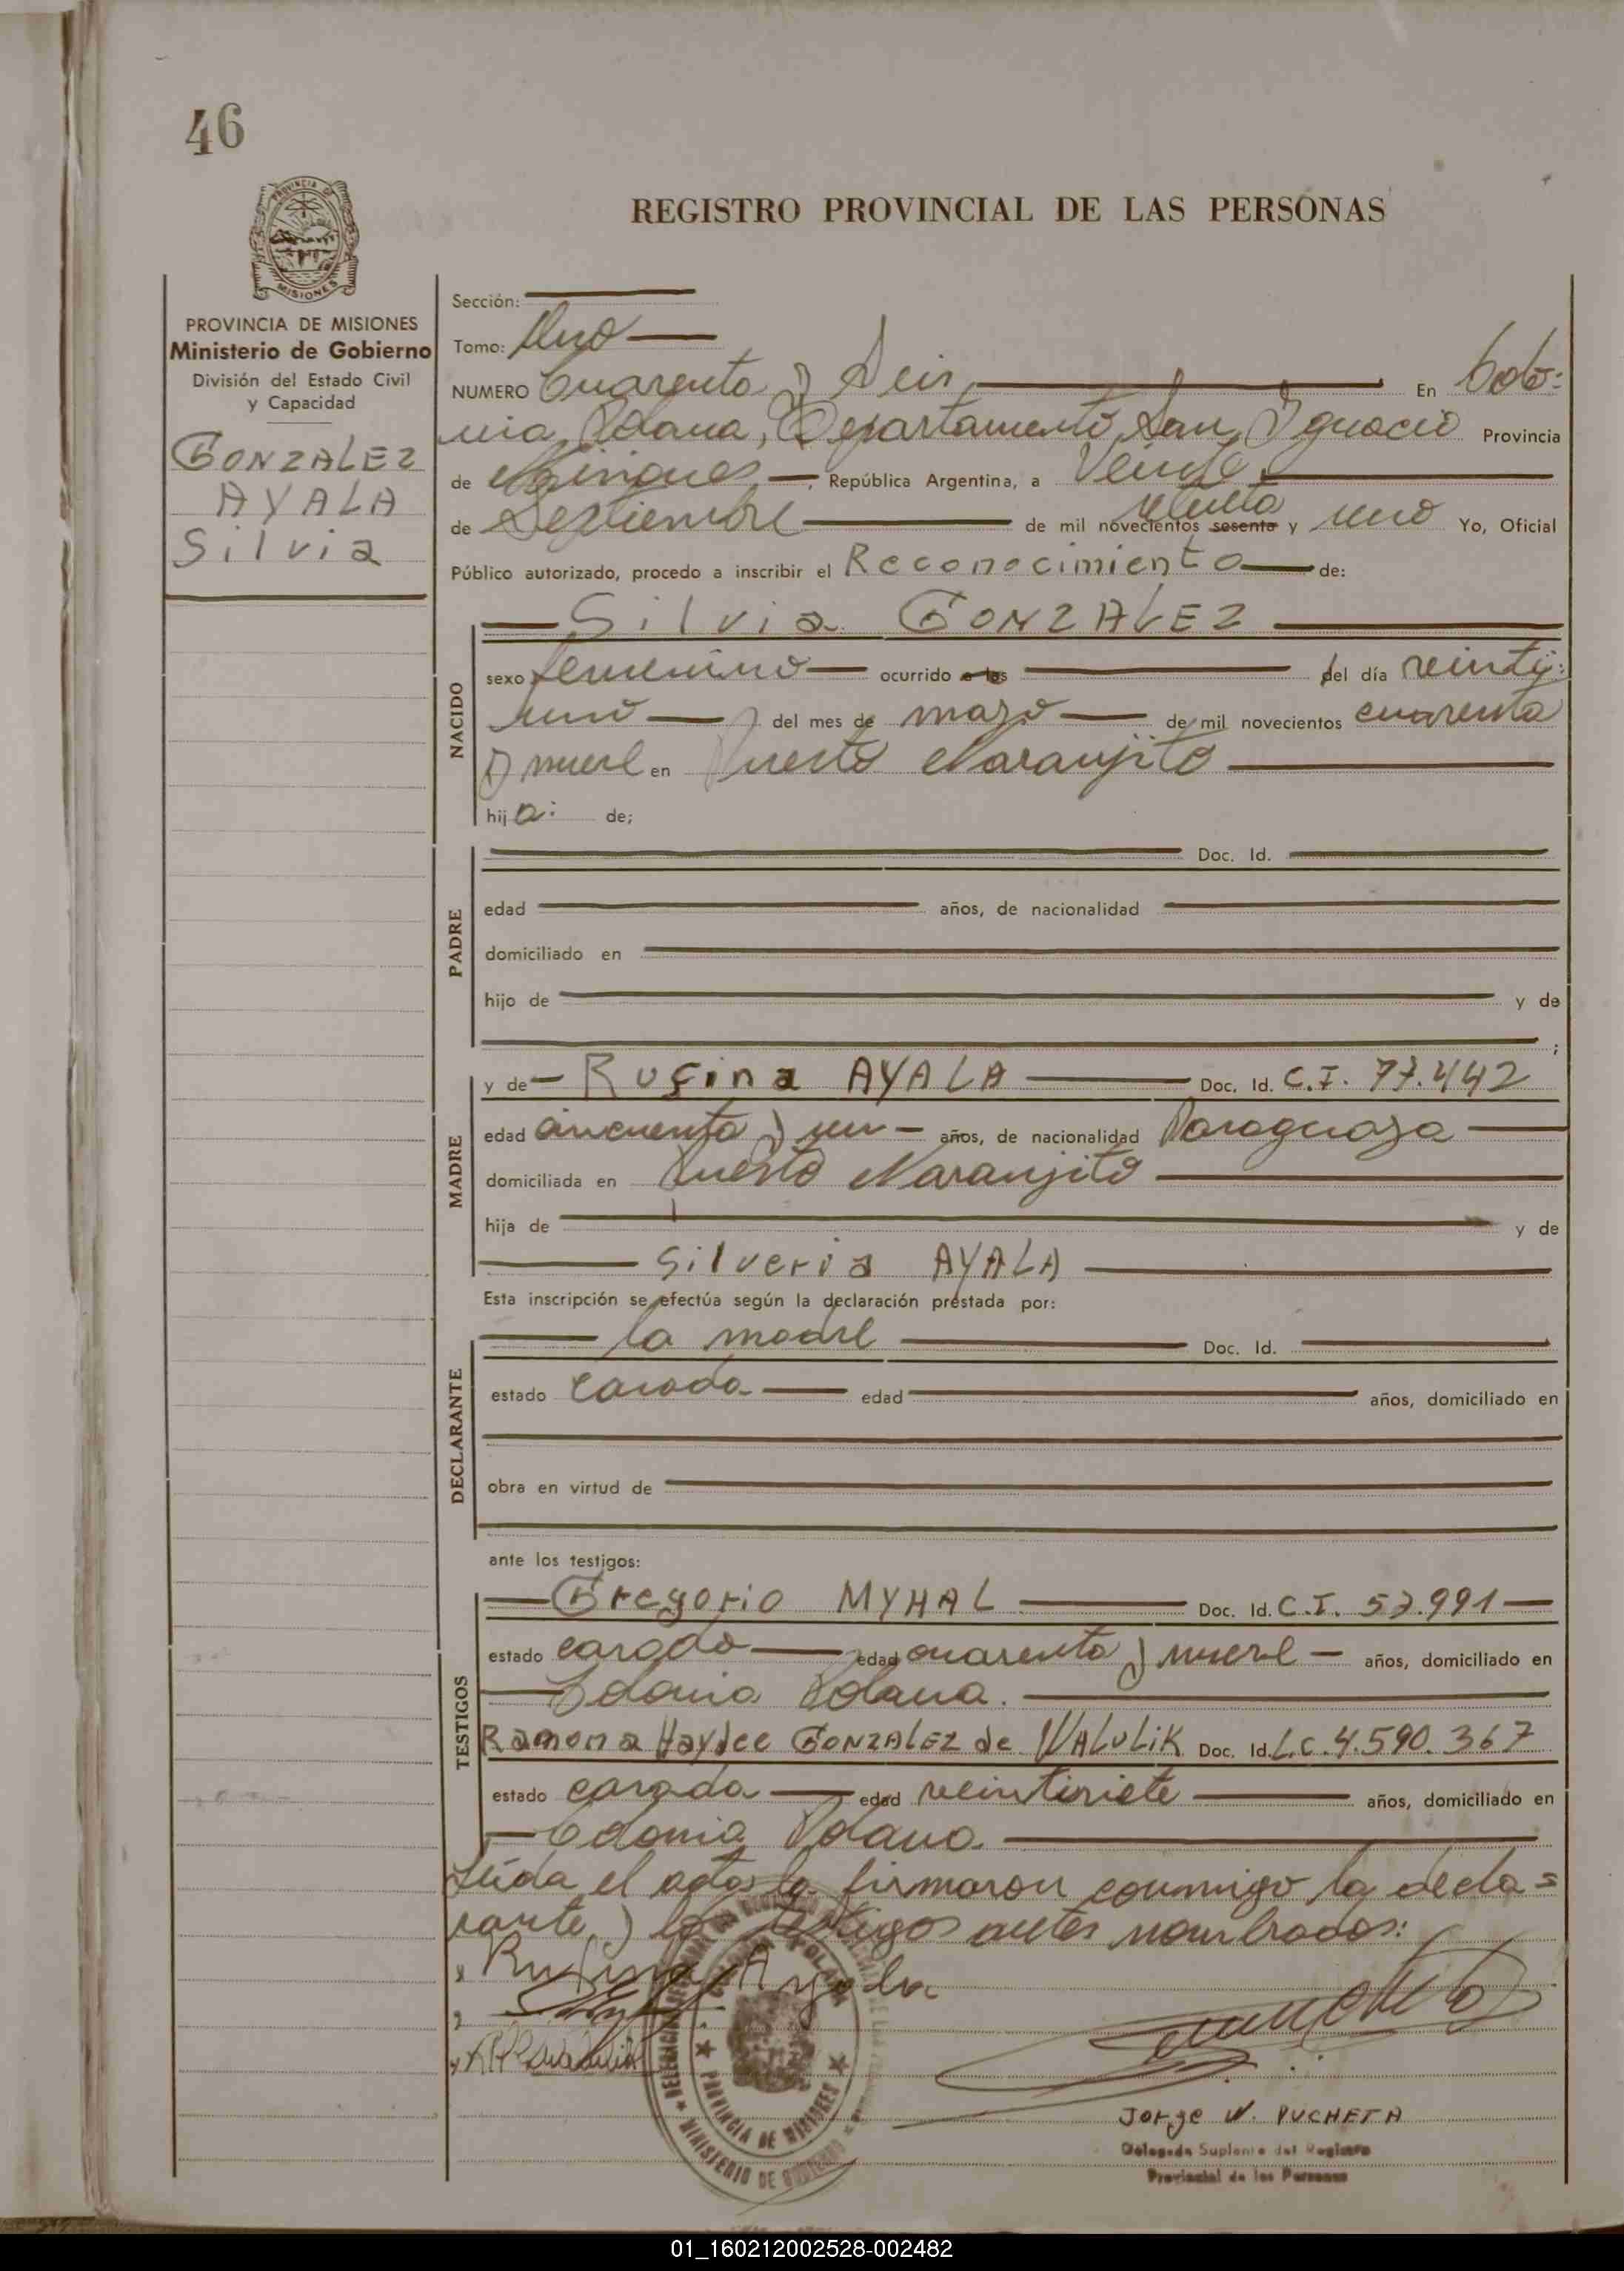 46
REGISTRO PROVINCIAL DE LAS PERSONAS
PROVINCIA DE MISIONES
Ministerio de Gobierno
División del Estado Civil
y Capacidad
GONZALEZ
AYALA
Silvia
Sección:
Tomo: Uno
NUMERO Cuarenta y Seis En Colo-
nia Polana, Departamento San Ignacio Provincia
de Misiones, República Argentina, a Veinte
de Septiembre de mil novecientos sesenta setenta y uno Yo, Oficial
Público autorizado, procedo a inscribir el Reconocimiento de:
Silvia GONZALEZ
NACIDO
sexo femenino ocurrido a las del día veinti-
uno del mes de mayo de mil novecientos cuarenta
y nueve en Puerto Naranjito
hija: de;
PADRE
Doc. Id.
edad años, de nacionalidad
domiciliado en
hijo de y de
;
MADRE
y de Rufina AYALA Doc. Id. C.I. 77.442
edad cincuenta y un años, de nacionalidad Paraguaya
domiciliada en Puerto Naranjito
hija de y de
Silveria AYALA
Esta inscripción se efectúa según la declaración prestada por:
DECLARANTE
la madre Doc. Id.
estado casada edad años, domiciliado en
obra en virtud de
ante los testigos:
TESTIGOS
Gregorio MYHAL Doc. Id. C.I. 57.991
estado casado edad cuarenta y nueve años, domiciliado en
Colonia Polana.
Ramona Haydee GONZALEZ de WALULIK Doc. Id. L.C. 4.590.367
estado casada edad veintisiete años, domiciliado en
Colonia Polana.
Leída el acta la firmaron conmigo la decla=
rante y los testigos antes nombrados:
Rufina Ayala
POLANA
PROVINCIA DE MISIONES
MINISTERIO DE GOBIERNO
Jorge N. PUCHETA
Delegado Suplente del Registro
Provincial de las Personas
01_160212002528-002482